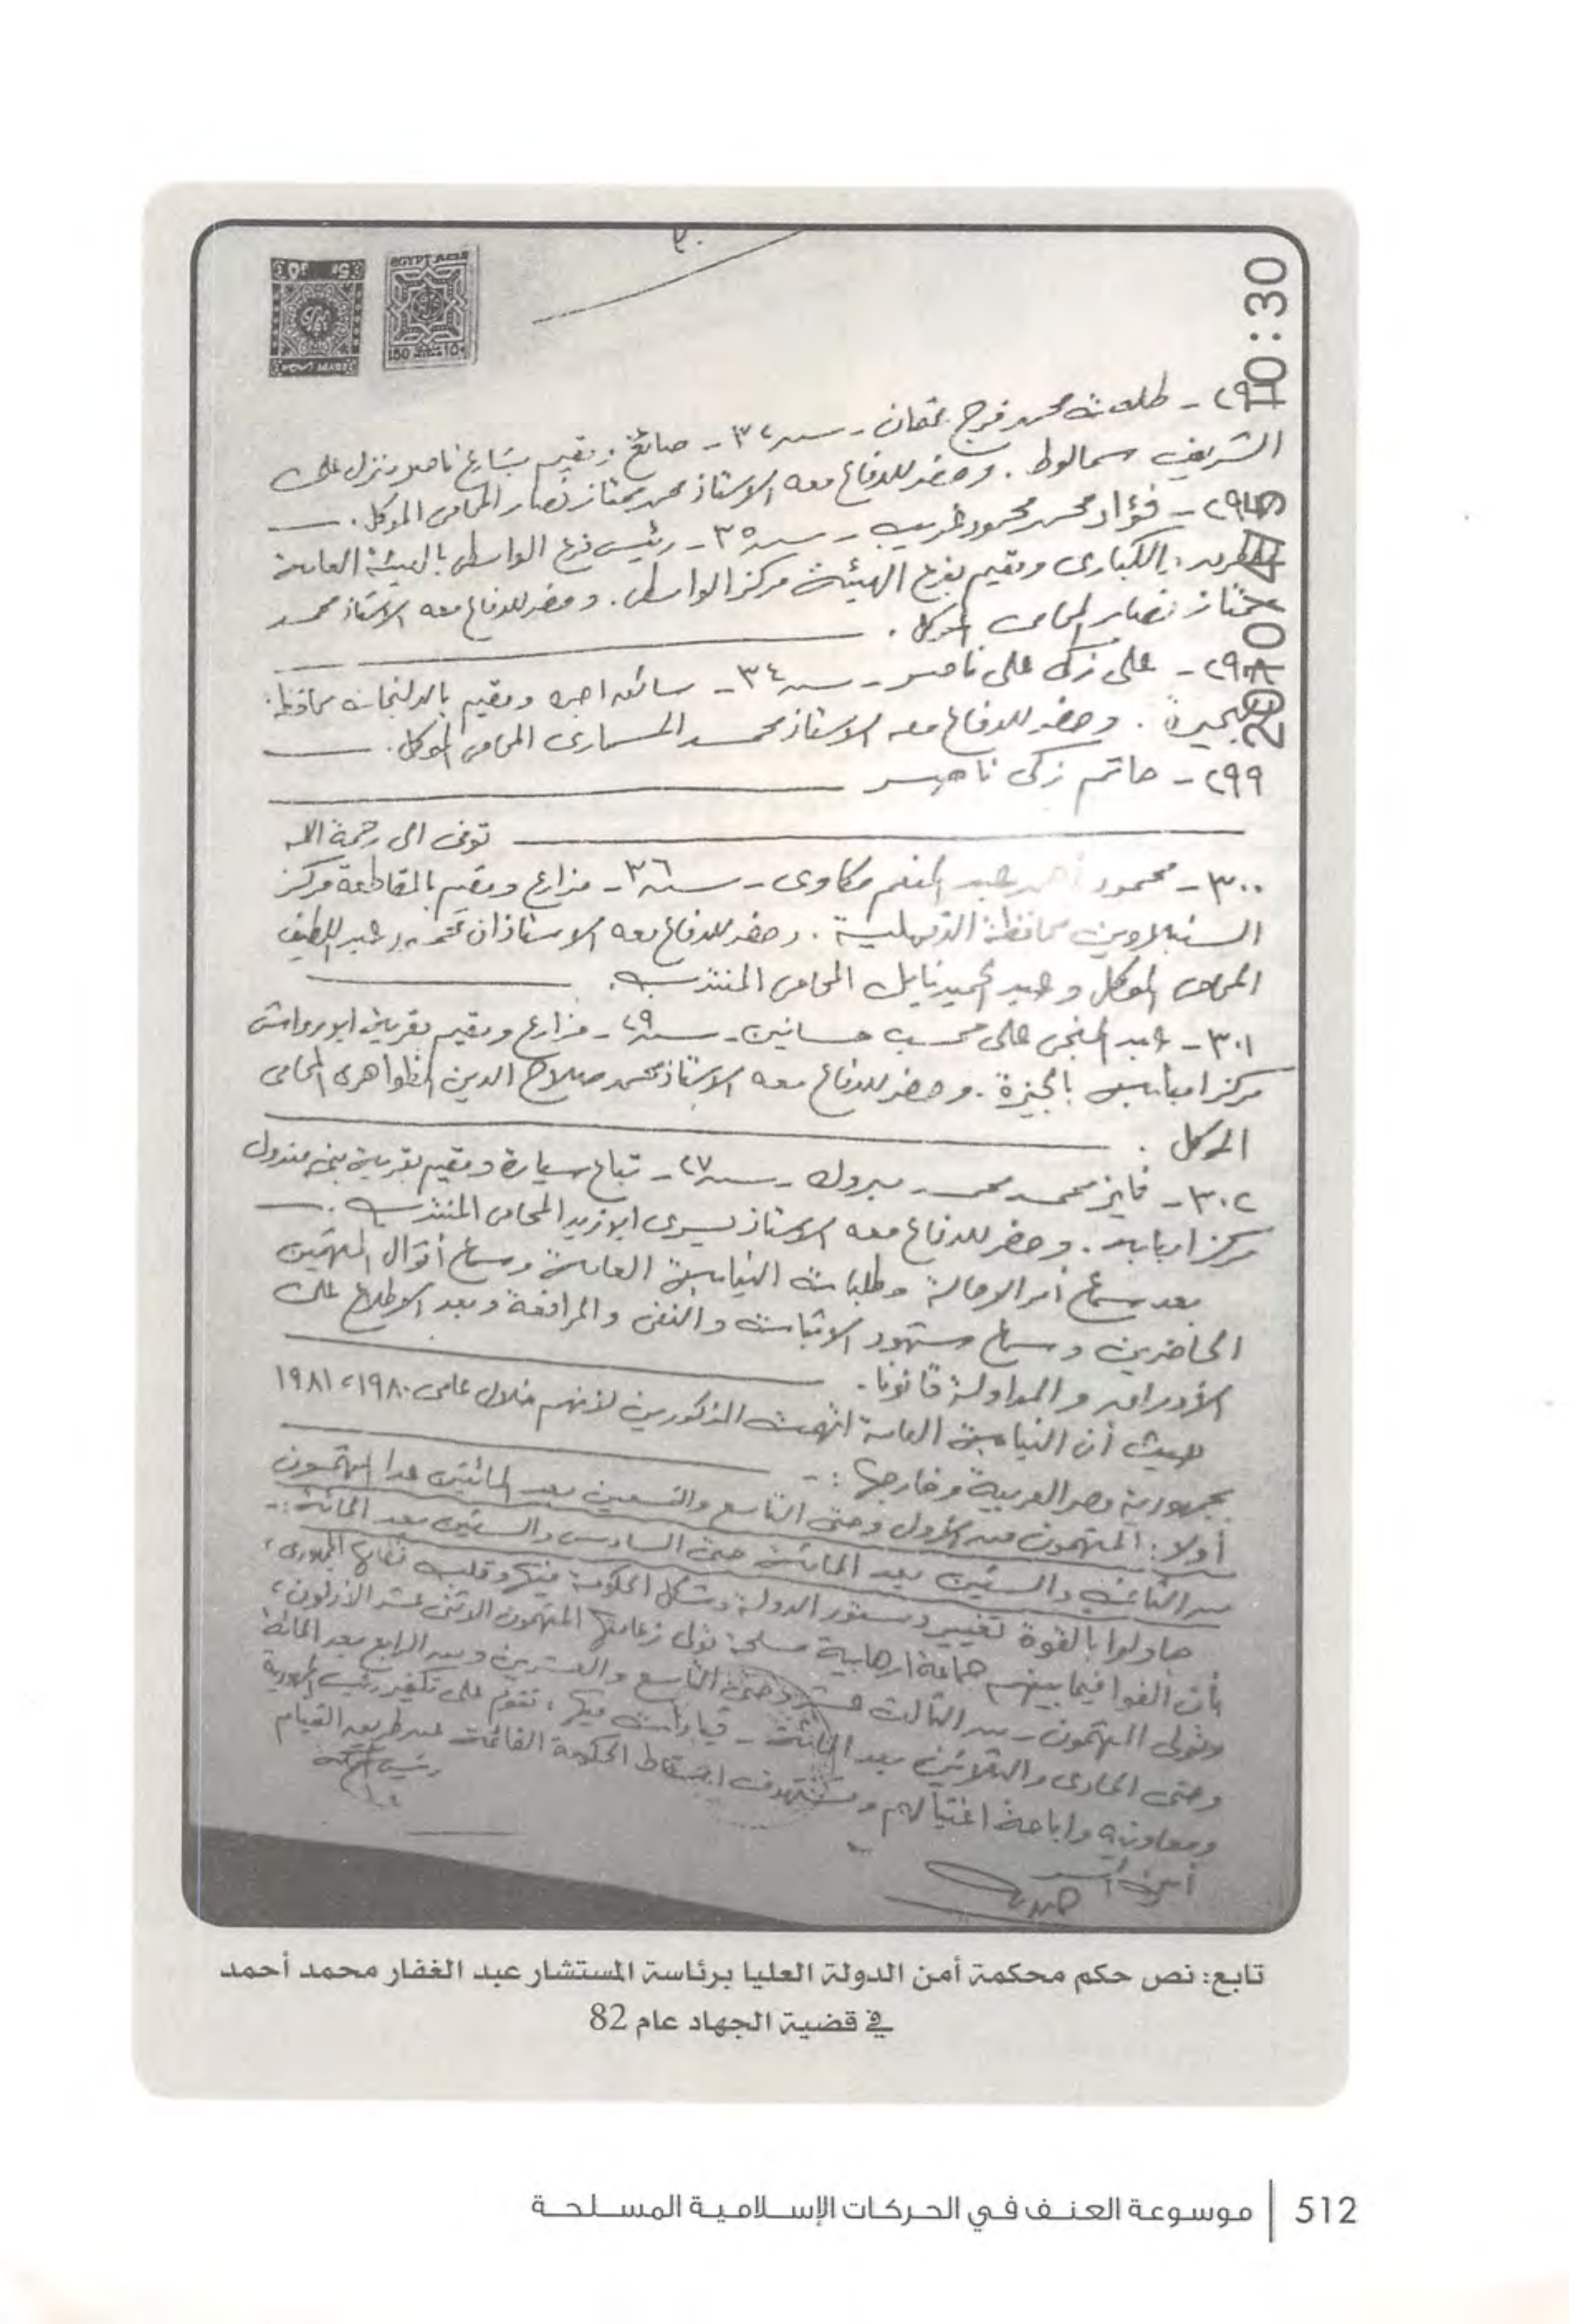 ٣٠
EGYPT
150
10:30
2010/04/05
طلعت محمد فرج عثمان - سنه ٣٢ - صائغ ومقيم بشارع ناصر منزل على
الشريف سمالوط . وحضر للدفاع معه الاستاذ محمد ممتاز نصار المحامى الموكل .
فؤاد محمد محمود غريب - سنه ٣٥ - رئيس فرع الواسطى بالهيئة العامة
للطرق والكبارى ومقيم بفرع الهيئة مركز الواسطى . وحضر للدفاع معه الاستاذ محمد
ممتاز نصار المحامى الموكل .
٢٩٨ - على زكى على ناصر - سنه ٣٤ - سائق اجره ومقيم بالدلنجات محافظة
البحيرة . وحضر للدفاع معه الاستاذ محمد المسمارى المحامى الموكل .
٢٩٩ - حاتم زكى ناصر
توفى الى رحمة الله
٣٠٠ - محمود أحمد عبد المنعم مكاوى - سنه ٣٦ - مزارع ومقيم بالمقاطعة مركز
السنبلاوين محافظة الدقهلية . وحضر للدفاع معه الاستاذان عبد اللطيف
المحامى الموكل وعبد الحميد نايل المحامى المنتدب .
٣٠١ - عبد المنجى على محسب حسانين - سنه ٢٩ - مزارع ومقيم بقرية ابو رواش
مركز امبابه بالجيزة . وحضر للدفاع معه الاستاذ محمد صلاح الدين الظواهرى المحامى
الموكل .
٣٠٢ - فايز محمد محمد مبروك - سنه ٢٧ - تباع سيارة ومقيم بقرية بنى
مركز امبابه . وحضر للدفاع معه الاستاذ يسرى ابو زيد المحامى المنتدب .
بعد سماع أمر الاحالة وطلبات النيابة العامة وسماع أقوال المتهمين
الحاضرين وسماع شهود الاثبات والنفى والمرافعة وبعد الاطلاع على
الأوراق والمداولة قانونا .
حيث أن النيابة العامة اتهمت المذكورين لأنهم خلال عامى ١٩٨٠ ، ١٩٨١
بجمهورية مصر العربية وخارجها : -
أولا : المتهمون من الأول وحتى التاسع والتسعين بعد المائتين عدا المتهمون
من الثانى والستين بعد المائة حتى السادس والستين بعد المائة : -
حاولوا بالقوة تغيير دستور الدولة وشكل الحكومة فيها وقلب نظامها الجمهورى ،
بأن الفوا فيما بينهم جماعة ارهابية مسلحة تولى زعامتها المتهمون الاثنى عشر الأولون ،
وتولى المتهمون - من الثالث عشر وحتى التاسع والعشرين ومن الرابع بعد المائة
وحتى الحادى والثلاثين بعد المائة - قيادات فيها ، تقوم على تكفير رئيس الجمهورية
ومعاونيه واباحة اغتيالهم وتستهدف اسقاط الحكومة القائمة عن طريق القيام
رئيس المحكمة
أمين السر
تابع: نص حكم محكمة أمن الدولة العليا برئاسة المستشار عبد الغفار محمد أحمد
في قضية الجهاد عام 82
512 | موسوعة العنف في الحركات الإسلامية المسلحة